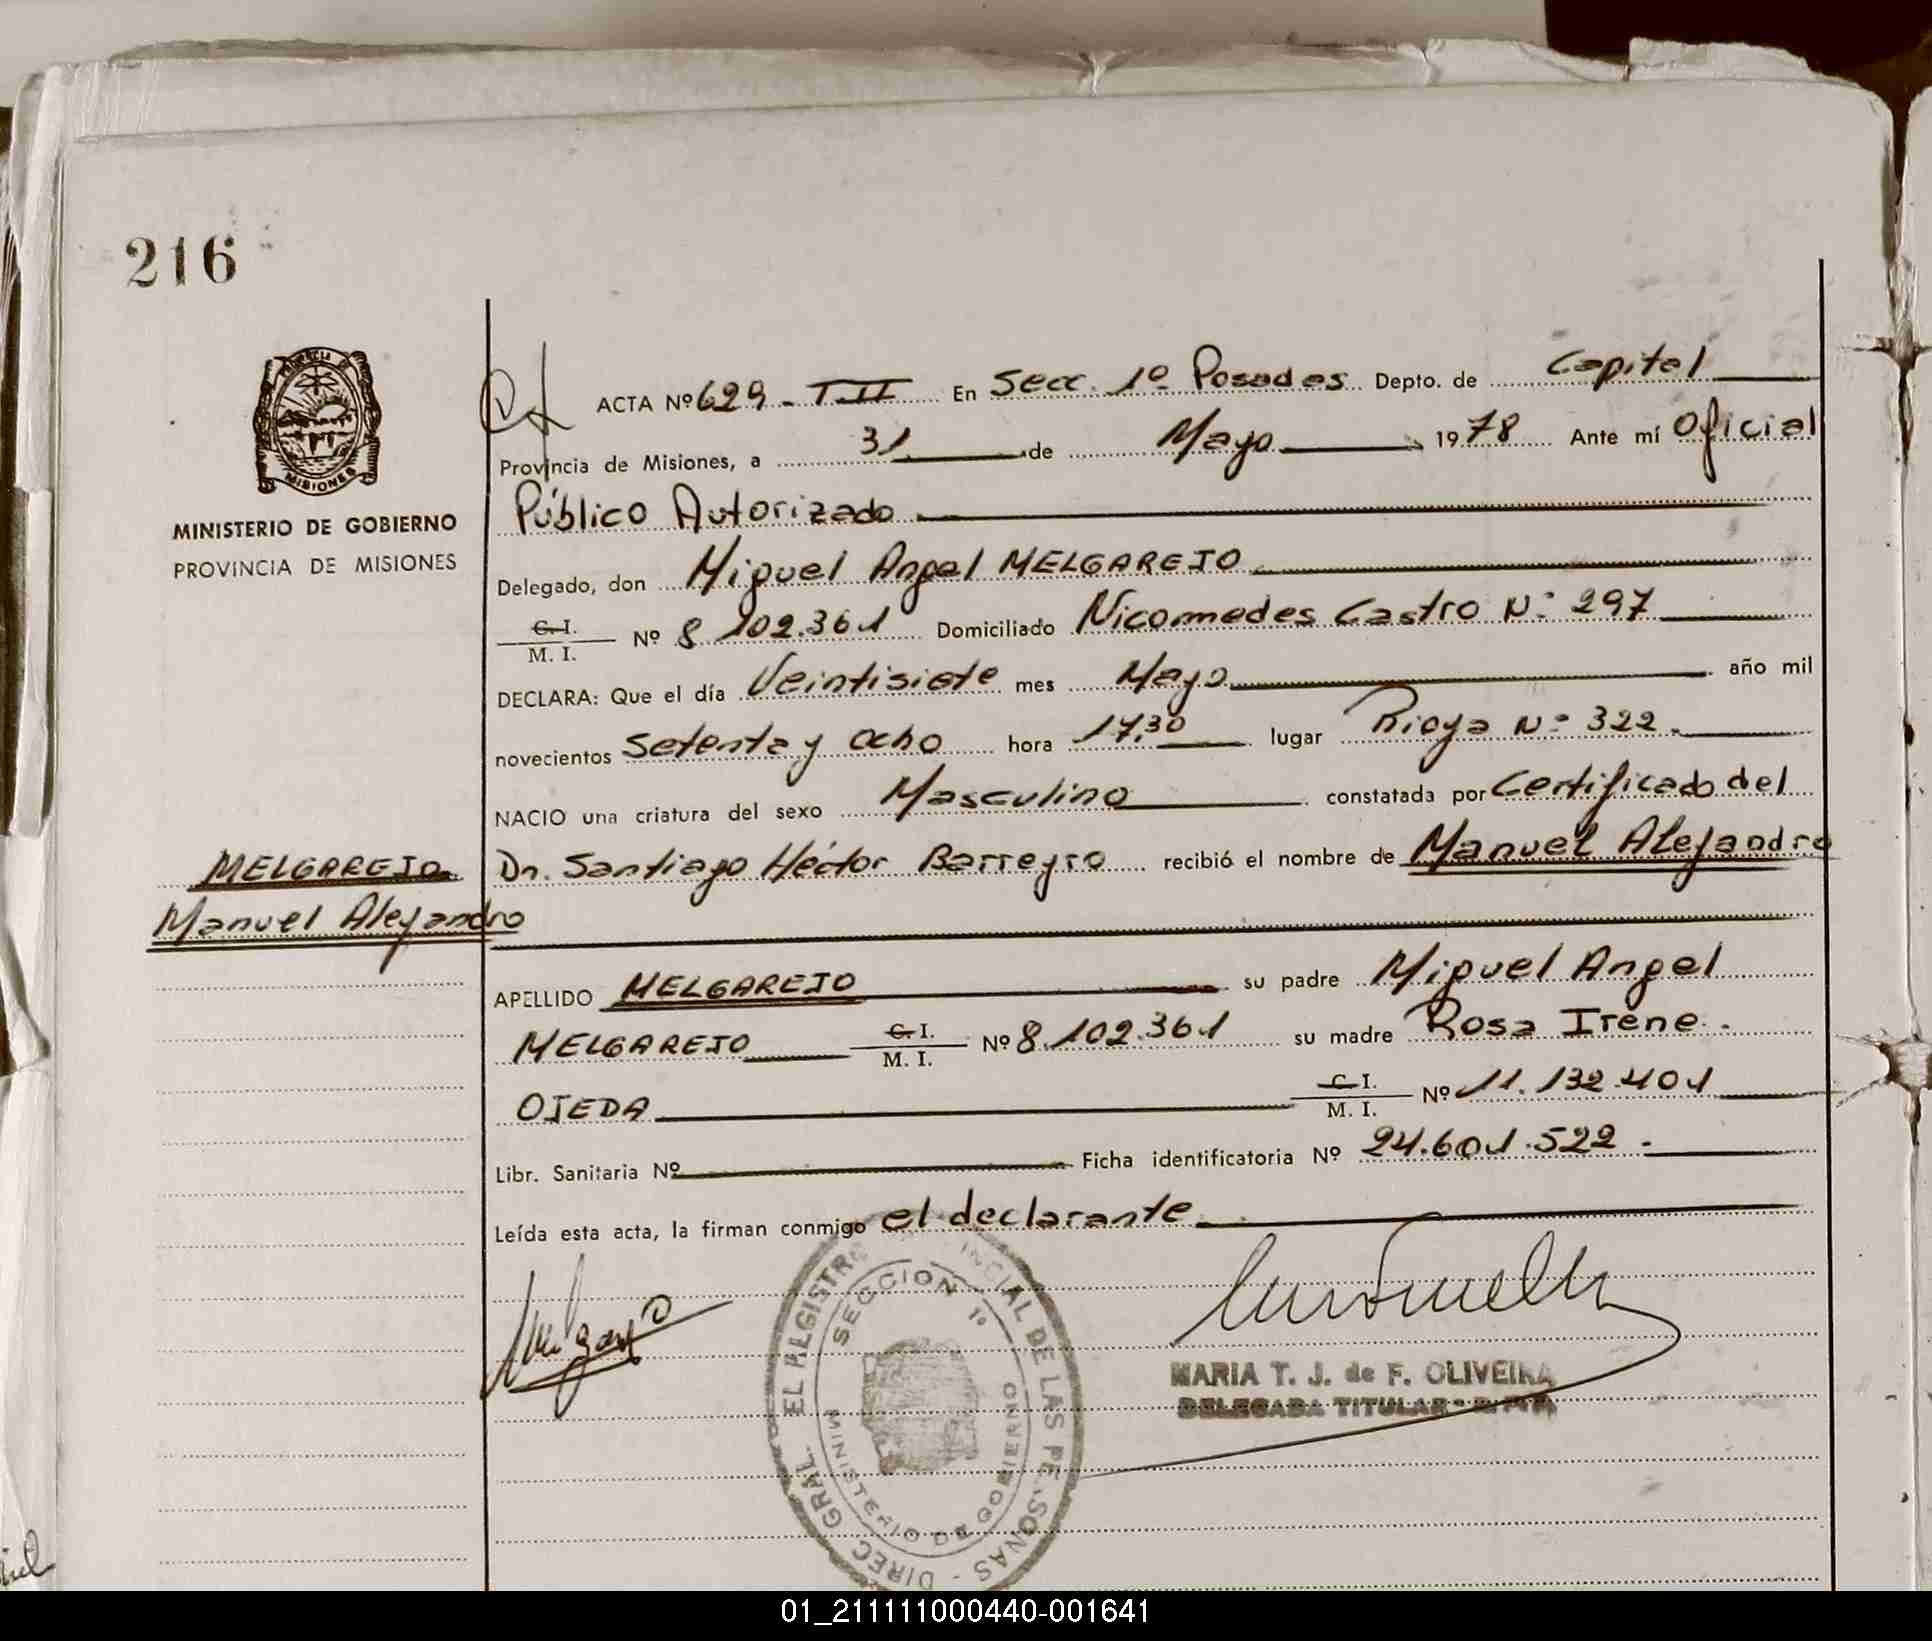 216
PROVINCIA DE
MISIONES
MINISTERIO DE GOBIERNO
PROVINCIA DE MISIONES
MELGAREJO
Manuel Alejandro
ACTA Nº 629 - T.II En Secc. 1º Posadas Depto. de Capital
Provincia de Misiones, a 31 de Mayo 1978 Ante mí Oficial
Público Autorizado
Delegado, don Miguel Angel MELGAREJO
C. I. / M. I. Nº 8.102.361 Domiciliado Nicomedes Castro Nº 297
DECLARA: Que el día Veintisiete mes Mayo año mil
novecientos Setenta y Ocho hora 17,30 lugar Rioja Nº 322.
NACIO una criatura del sexo Masculino constatada por Certificado del
Dr. Santiago Héctor Barreyro recibió el nombre de Manuel Alejandro
APELLIDO MELGAREJO su padre Miguel Angel
MELGAREJO C. I. / M. I. Nº 8.102.361 su madre Rosa Irene.
OJEDA C. I. / M. I. Nº 11.132.401
Libr. Sanitaria Nº Ficha identificatoria Nº 24.601.522.
Leída esta acta, la firman conmigo el declarante
DIREC. GRAL. EL REGISTRO PROVINCIAL DE LAS PERSONAS
SECCION 1º
MINISTERIO DE GOBIERNO
MARIA T. J. de F. OLIVEIRA
DELEGADA TITULAR
01_211111000440-001641